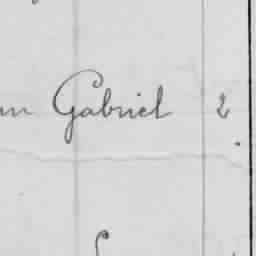 Gabriel 2